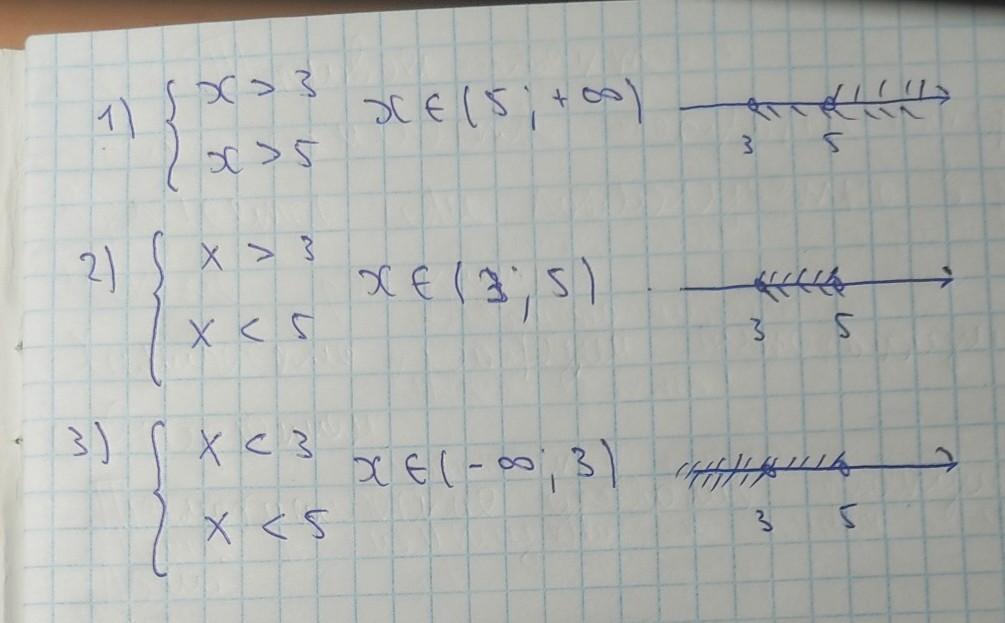 1) { x > 3 x ∈ (5; +∞)
x > 5
3 5
2) { x > 3 x ∈ (3; 5)
x < 5
3 5
3) { x < 3 x ∈ (-∞; 3)
x < 5
3 5